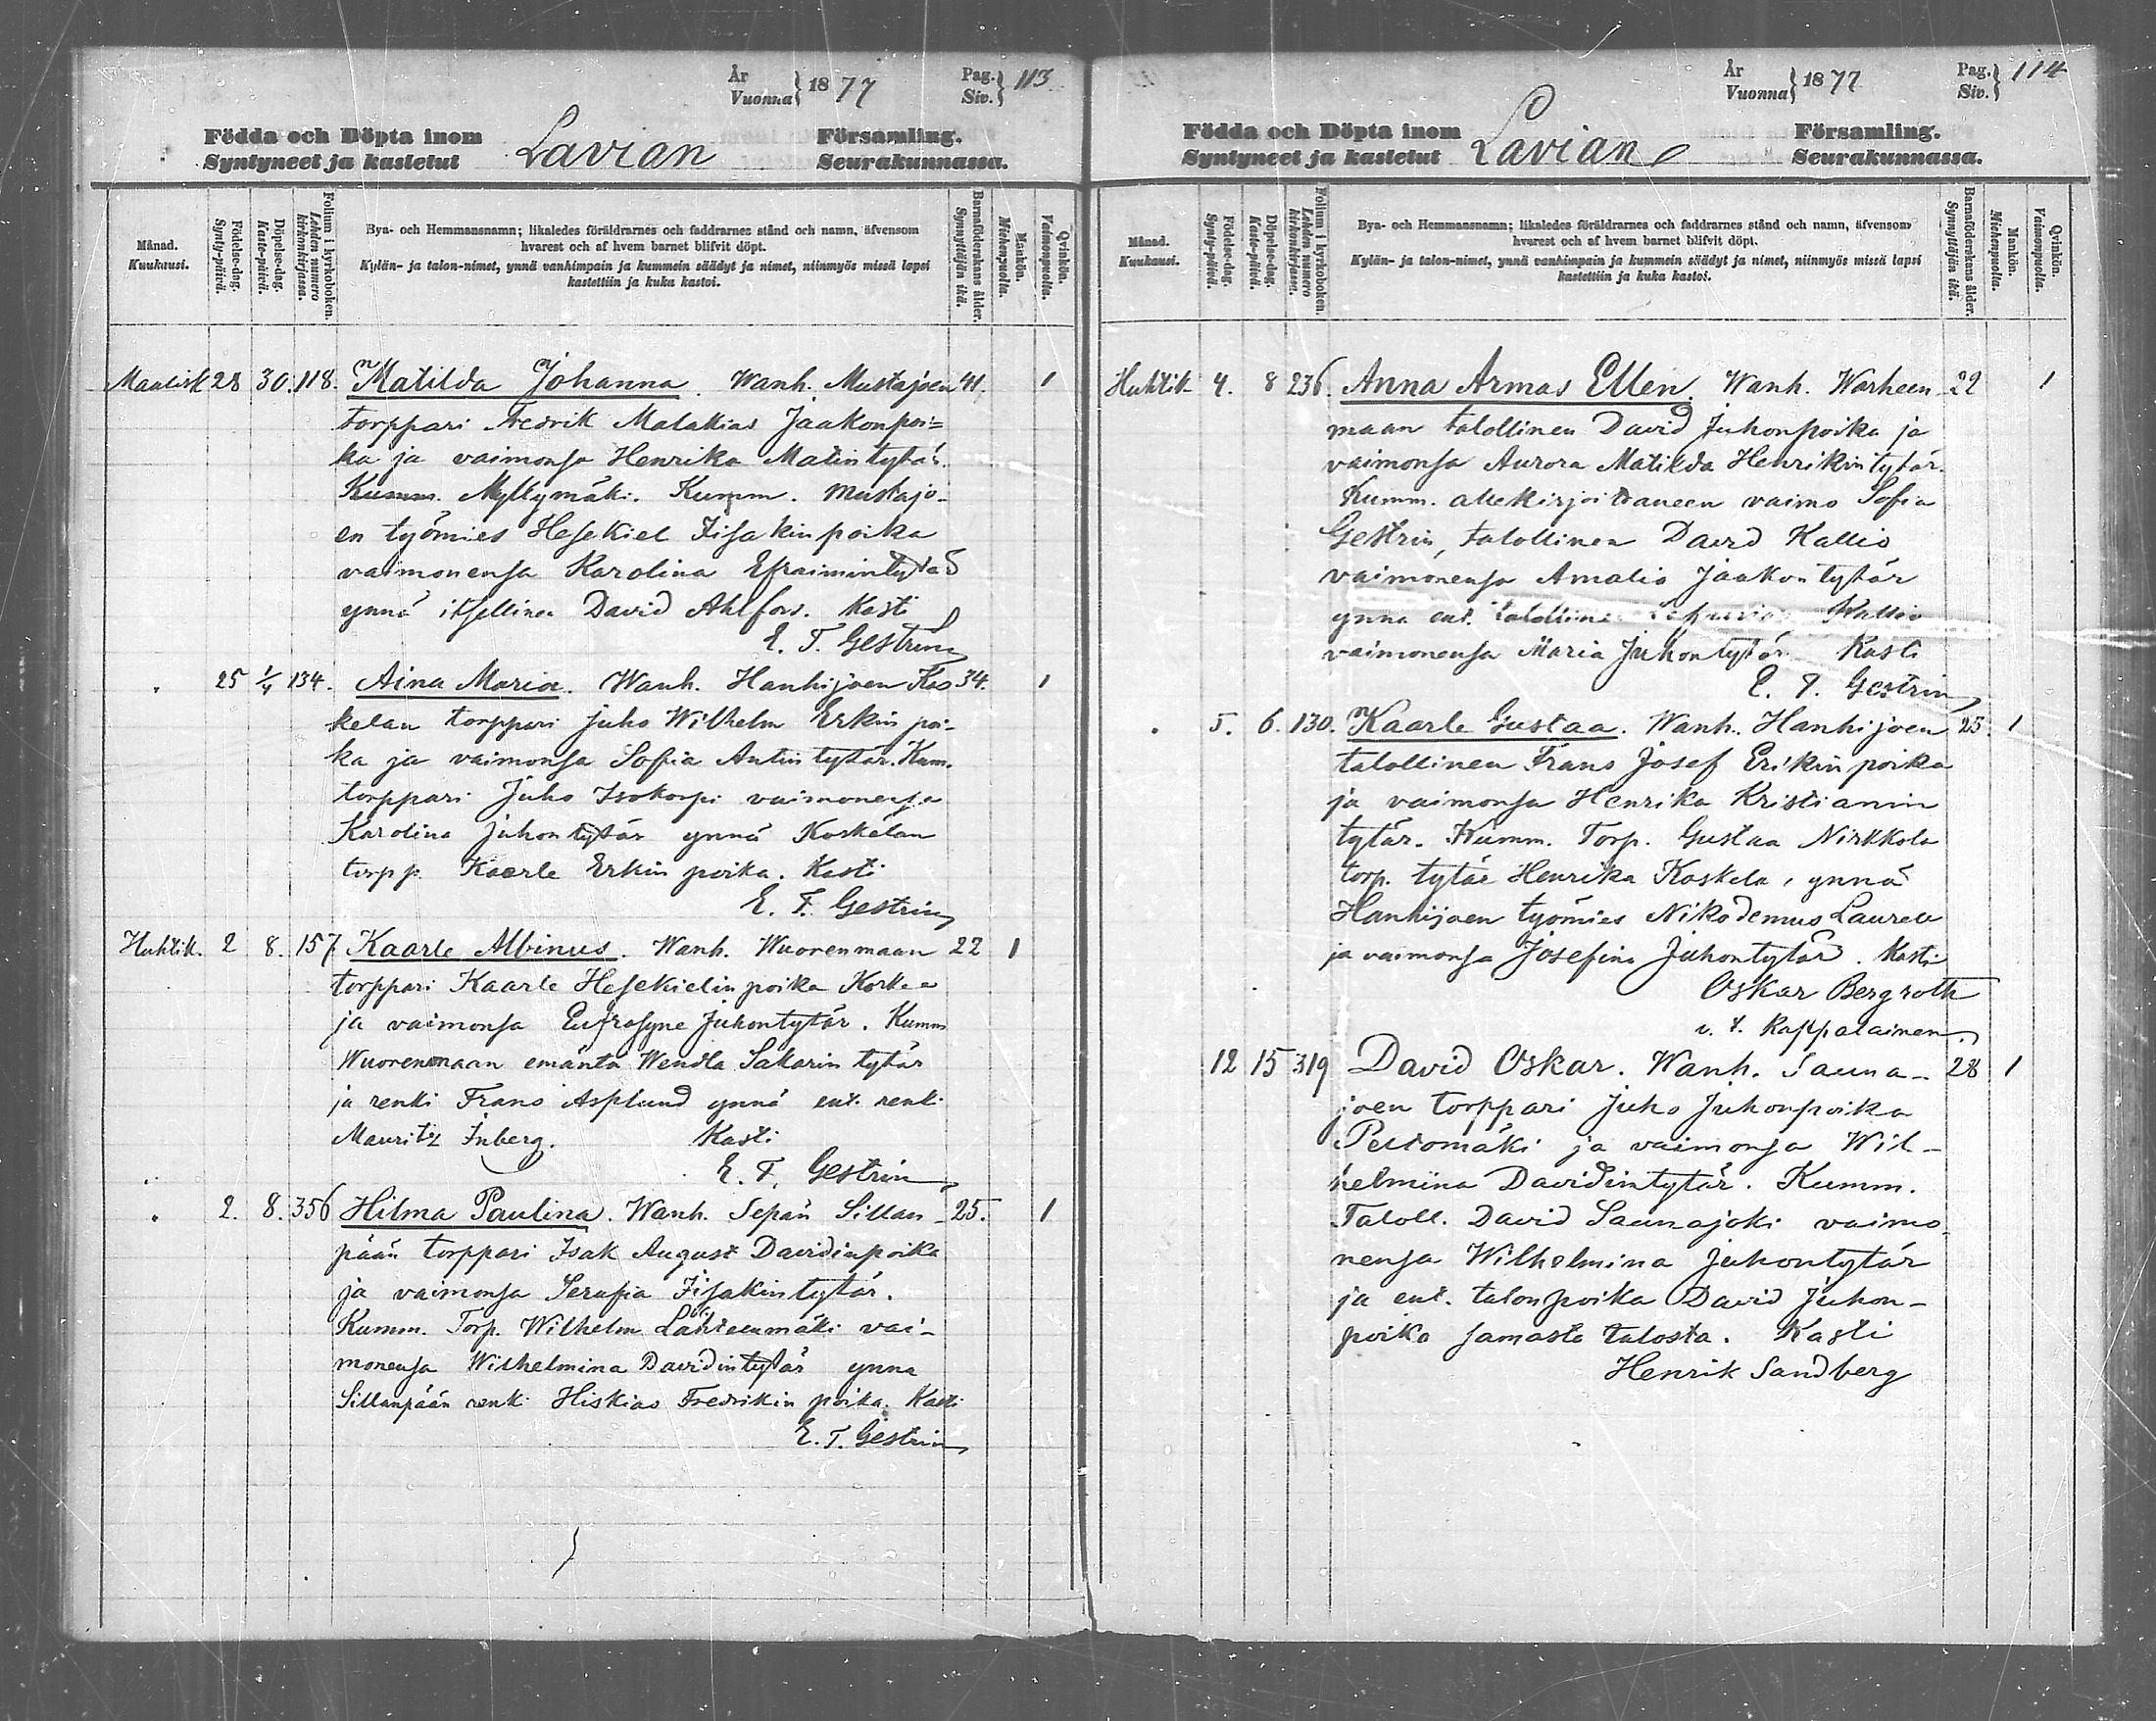 År
Vuonna } 1877
Pag.
Siv. } 113
Födda och Döpta inom
Syntyneet ja kastetut
Lavian
Församling.
Seurakunnassa.
Månad.
Kuukausi.
Födelse-dag.
Synty-päivä.
Döpelse-dag.
Kaste-päivä.
Folium i kyrkoboken.
Lehden numero
kirkonkirjassa.
Bya- och Hemmansnamn; likaledes föräldrarnes och faddrarnes stånd och namn, äfvensom
hvarest och af hvem barnet blifvit döpt.
Kylän- ja talon-nimet, ynnä vanhimpain ja kummein säädyt ja nimet, niinmyös missä lapsi
kastettiin ja kuka kastoi.
Barnaföderskans ålder.
Synnyttäjän ikä.
Mankön.
Miehenpuolia.
Qvinkön.
Vaimonpuolia.
Maalisk 28 30. 118. Matilda Johanna. Wanh. Mustajoen 41. 1
torppari Fredrik Malakias Jaakonpoi=
ka ja vaimonsa Henrika Matintytär.
Kumm. Myllymäki. Kumm. Mustajo-
en työmies Hesekiel Iisakinpoika
vaimonensa Karolina Efraimintytär
ynnä itsellinen David Ahlfors. Kasti
E. F. Gestrin
" 25 1/4 134. Aina Maria. Wanh. Hanhijoen Kos 34. 1
kelan torppari Juho Wilhelm Erkin poi-
ka ja vaimonsa Sofia Antin tytär. Kum.
torppari Juho Isokorpi vaimonensa
Karolina Juhontytär ynnä Koskelan
torpp. Kaarle Erkin poika. Kasti
E. F. Gestrin
Huhtik. 2 8. 157 Kaarle Albinus. Wanh. Wuorenmaan 22 1
torppari Kaarle Hesekielin poika Korkea
ja vaimonsa Eufrosyne Juhontytär. Kumm
Wuorenmaan emäntä Wendla Sakarin tytär
ja renki Frans Asplund ynnä ent. renki
Mauritz Inberg. Kasti
E. F. Gestrin
" 2. 8. 356 Hilma Paulina. Wanh. Sepän Sillan- 25. 1
pään torppari Isak August Davidinpoika
ja vaimonsa Serafia Iisakintytär.
Kumm. Torp. Wilhelm Lähteenmäki vai-
monensa Wilhelmina Davidintytär ynna
Sillanpään renki Hiskias Fredrikin poika. Kasti
E. F. Gestrin
År
Vuonna } 1877
Pag.
Siv. } 114
Födda och Döpta inom
Syntyneet ja kastetut
Lavian
Församling.
Seurakunnassa.
Månad.
Kuukausi.
Födelse-dag.
Synty-päivä.
Döpelse-dag.
Kaste-päivä.
Folium i kyrkoboken.
Lehden numero
kirkonkirjassa.
Bya- och Hemmansnamn; likaledes föräldrarnes och faddrarnes stånd och namn, äfvensom
hvarest och af hvem barnet blifvit döpt.
Kylän- ja talon-nimet, ynnä vanhimpain ja kummein säädyt ja nimet, niinmyös missä lapsi
kastettiin ja kuka kastoi.
Barnaföderskans ålder.
Synnyttäjän ikä.
Mankön.
Miehenpuolia.
Qvinkön.
Vaimonpuolia.
Huhtik 4. 8 236. Anna Armas Ellen. Wanh. Warheen- 22 1
maan talollinen David Juhonpoika ja
vaimonsa Aurora Matilda Henrikin tytär.
Kumm. allekirjoittaneen vaimo Sofia
Gestrin, talollinen David Kallio
vaimonensa Amalia Jaakontytär
ynna ent. talollinen Kallio
vaimonensa Maria Juhontytär Kasti
E. F. Gestrin
" 5. 6. 130. Kaarle Gustaa. Wanh. Hanhijoen 25. 1
talollinen Frans Josef Erikin poika
ja vaimonsa Henrika Kristianin
tytär. Kumm. Torp. Gustaa Nirkkola
torp. tytär Henrika Koskela, ynnä
Hanhijoen työmies Nikodemus Laurell
ja vaimonsa Josefina Juhontytär. Kasti
Oskar Bergroth
v. t. Kappalainen.
12 15 319 David Oskar. Wanh. Sauna- 28 1
joen torppari Juho Juhonpoika
Peltomäki ja vaimonsa Wil-
helmina Davidintytär. Kumm.
Taloll. David Saunajoki vaimo
nensa Wilhelmina Juhontytär
ja ent. talonpoika David Juhon-
poika samasta talosta. Kasti
Henrik Sandberg